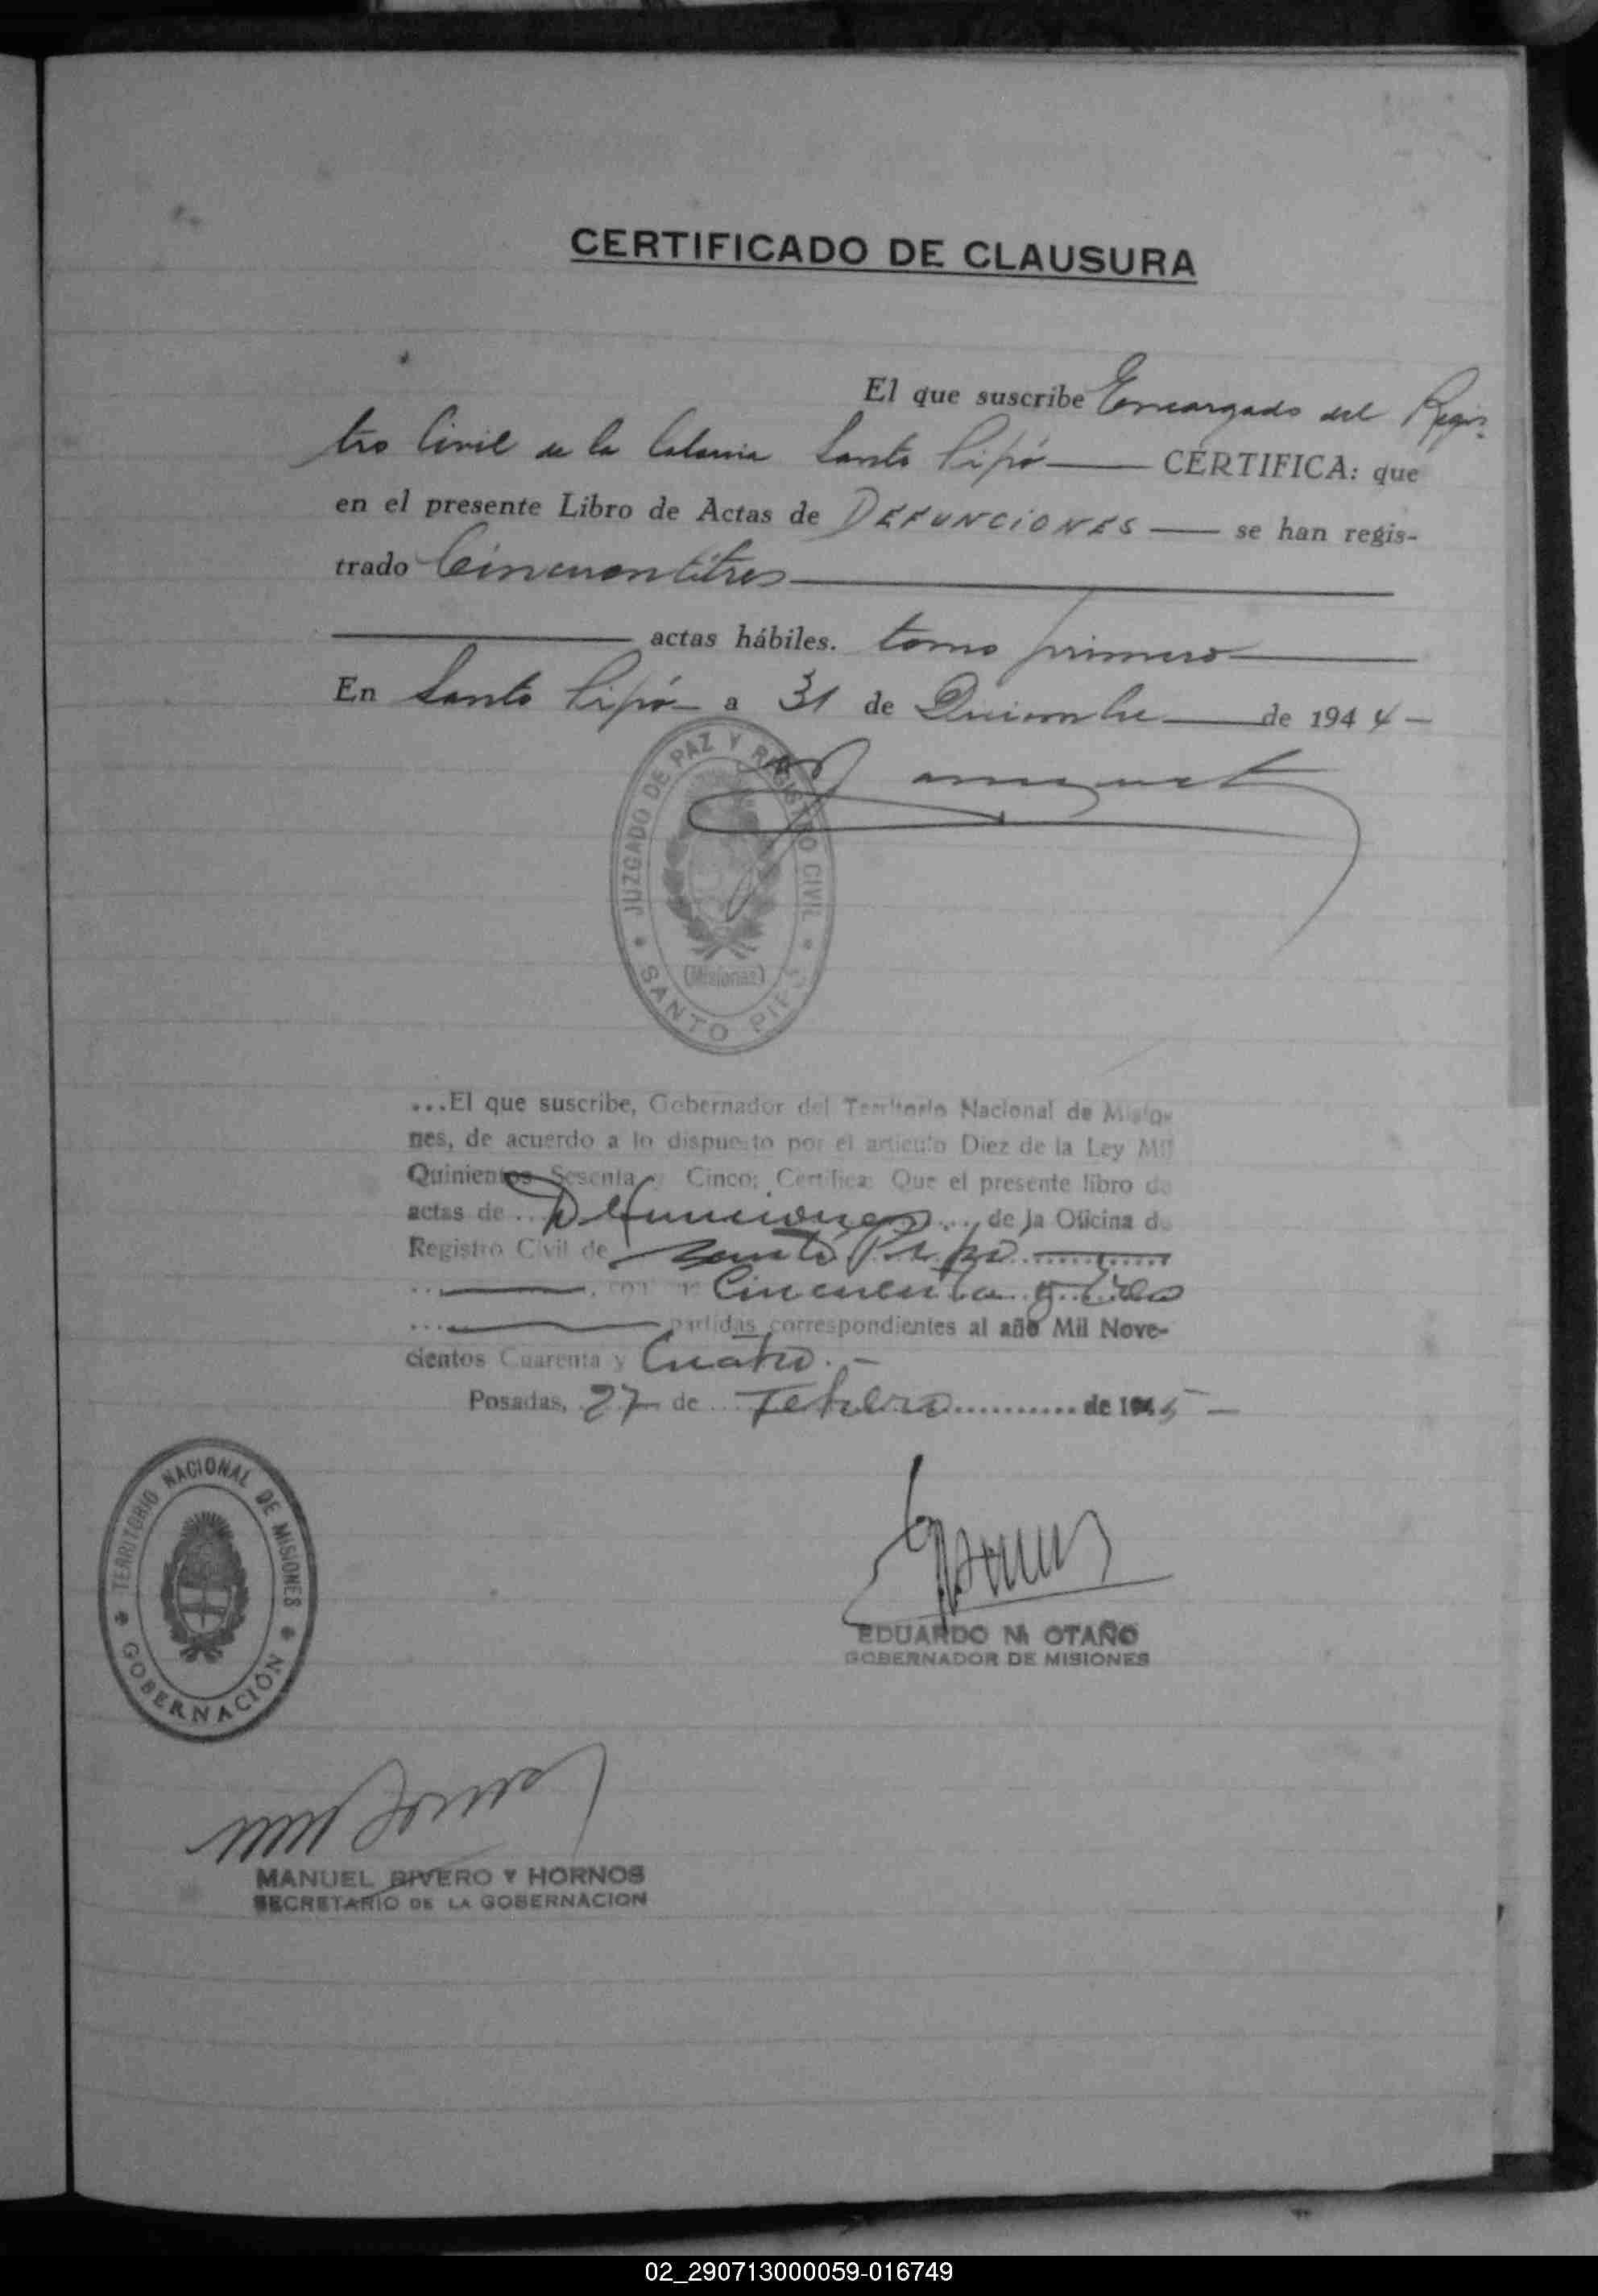 CERTIFICADO DE CLAUSURA
El que suscribe Encargado del Regis-
tro Civil de la Colonia Santo Pipó CERTIFICA: que
en el presente Libro de Actas de DEFUNCIONES se han regis-
trado Cincuentitres
actas hábiles. tomo primero
En Santo Pipó a 31 de Diciembre de 1944
JUZGADO DE PAZ Y REGISTRO CIVIL
(Misiones)
SANTO PIPÓ
...El que suscribe, Gobernador del Territorio Nacional de Misio-
nes, de acuerdo a lo dispuesto por el artículo Diez de la Ley Mil
Quinientos Sesenta y Cinco; Certifica: Que el presente libro de
actas de Defunciones de la Oficina de
Registro Civil de Santo Pipó
Cincuenta y tres
partidas correspondientes al año Mil Nove-
cientos Cuarenta y Cuatro.-
Posadas, 27 de Febrero de 1945
TERRITORIO NACIONAL DE MISIONES
GOBERNACIÓN
EDUARDO M OTAÑO
GOBERNADOR DE MISIONES
MANUEL RIVERO Y HORNOS
SECRETARIO DE LA GOBERNACION
02_290713000059-016749